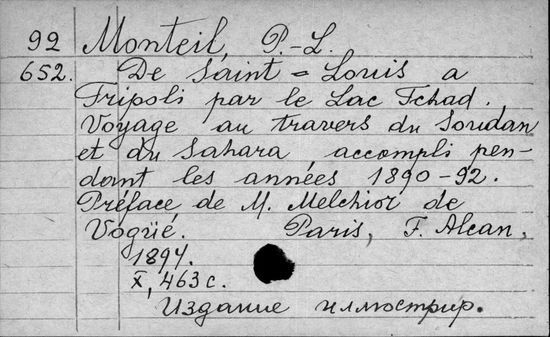 92 Monteil, P.-L.
652. De Saint-Louis a
Tripoli par le Lac Tchad.
Voyage au travers du Soudan
et du Sahara accompli pen-
dant les années 1890-92.
Préface de M. Melchior de
Vogüé. Paris, F. Alcan,
1894.
X, 463 c.
Издание иллюстрир.